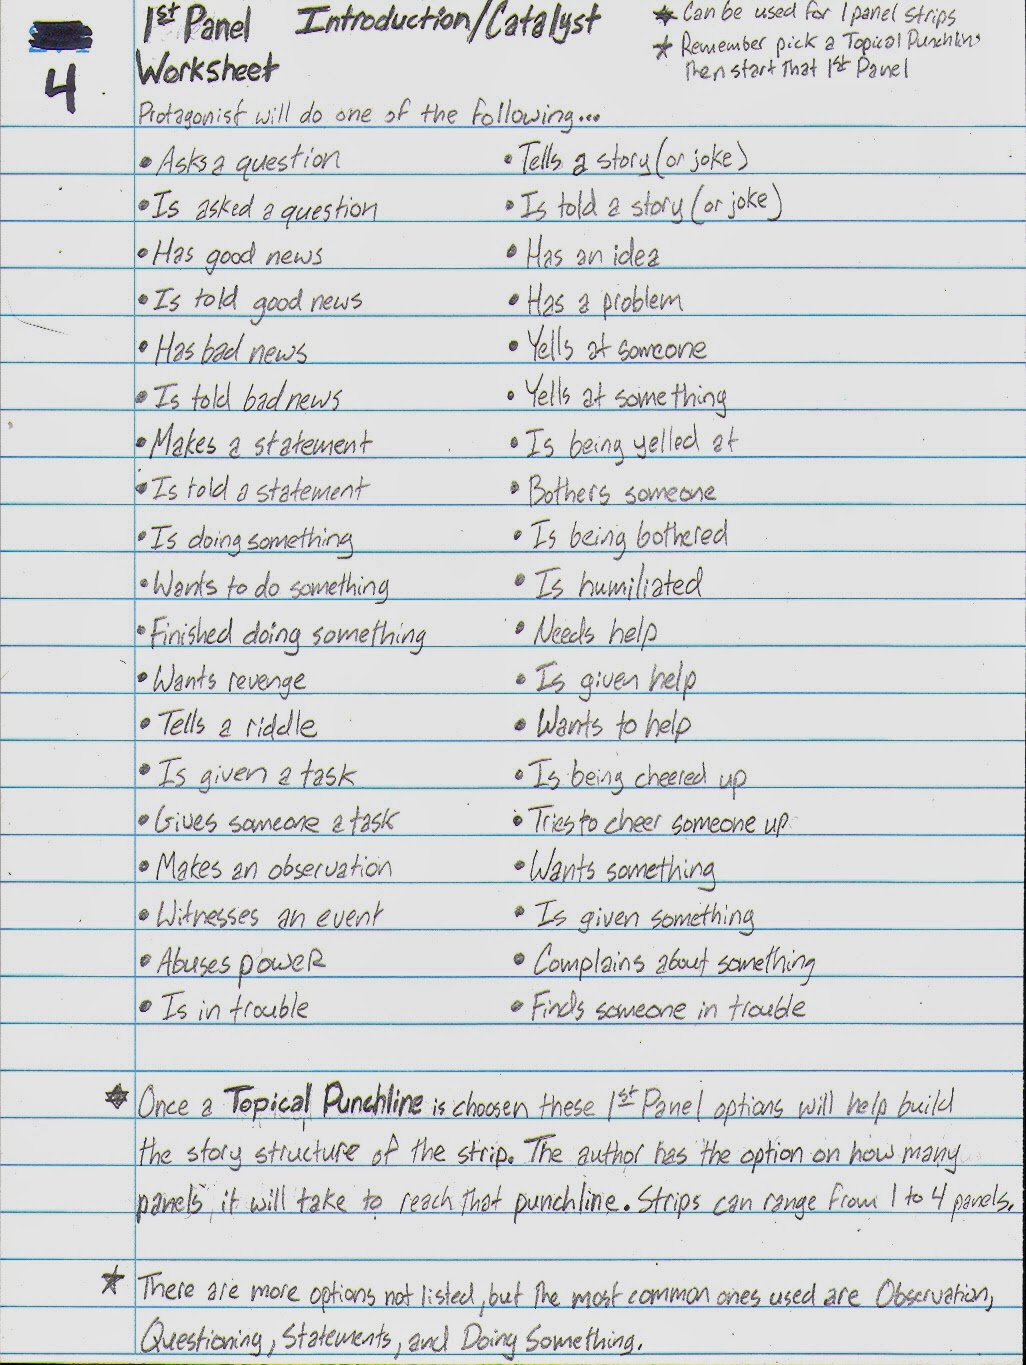 1st Panel Introduction/Catalyst
Worksheet
★ Can be used for 1 panel strips
★ Remember pick a Topical Punchline
Then start that 1st Panel
4
Protagonist will do one of the following...
• Asks a question
• Is asked a question
• Has good news
• Is told good news
• Has bad news
• Is told bad news
• Makes a statement
• Is told a statement
• Is doing something
• Wants to do something
• Finished doing something
• Wants revenge
• Tells a riddle
• Is given a task
• Gives someone a task
• Makes an observation
• Witnesses an event
• Abuses power
• Is in trouble
• Tells a story (or joke)
• Is told a story (or joke)
• Has an idea
• Has a problem
• Yells at someone
• Yells at something
• Is being yelled at
• Bothers someone
• Is being bothered
• Is humiliated
• Needs help
• Is given help
• Wants to help
• Is being cheered up
• Tries to cheer someone up
• Wants something
• Is given something
• Complains about something
• Finds someone in trouble
★ Once a Topical Punchline is choosen these 1st Panel options will help build
the story structure of the strip. The author has the option on how many
panels it will take to reach that punchline. Strips can range from 1 to 4 panels.
★ There are more options not listed, but the most common ones used are Observation,
Questioning, Statements, and Doing Something.